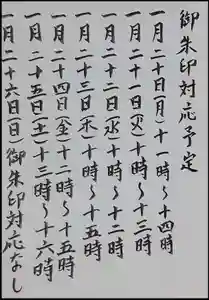 御朱印対応予定
一月二十日(月)十一時〜十四時
一月二十一日(火)十時〜十三時
一月二十二日(水)十時〜十二時
一月二十三日(木)十時〜十五時
一月二十四日(金)十二時〜十五時
一月二十五日(土)十三時〜十六時
一月二十六日(日)御朱印対応なし